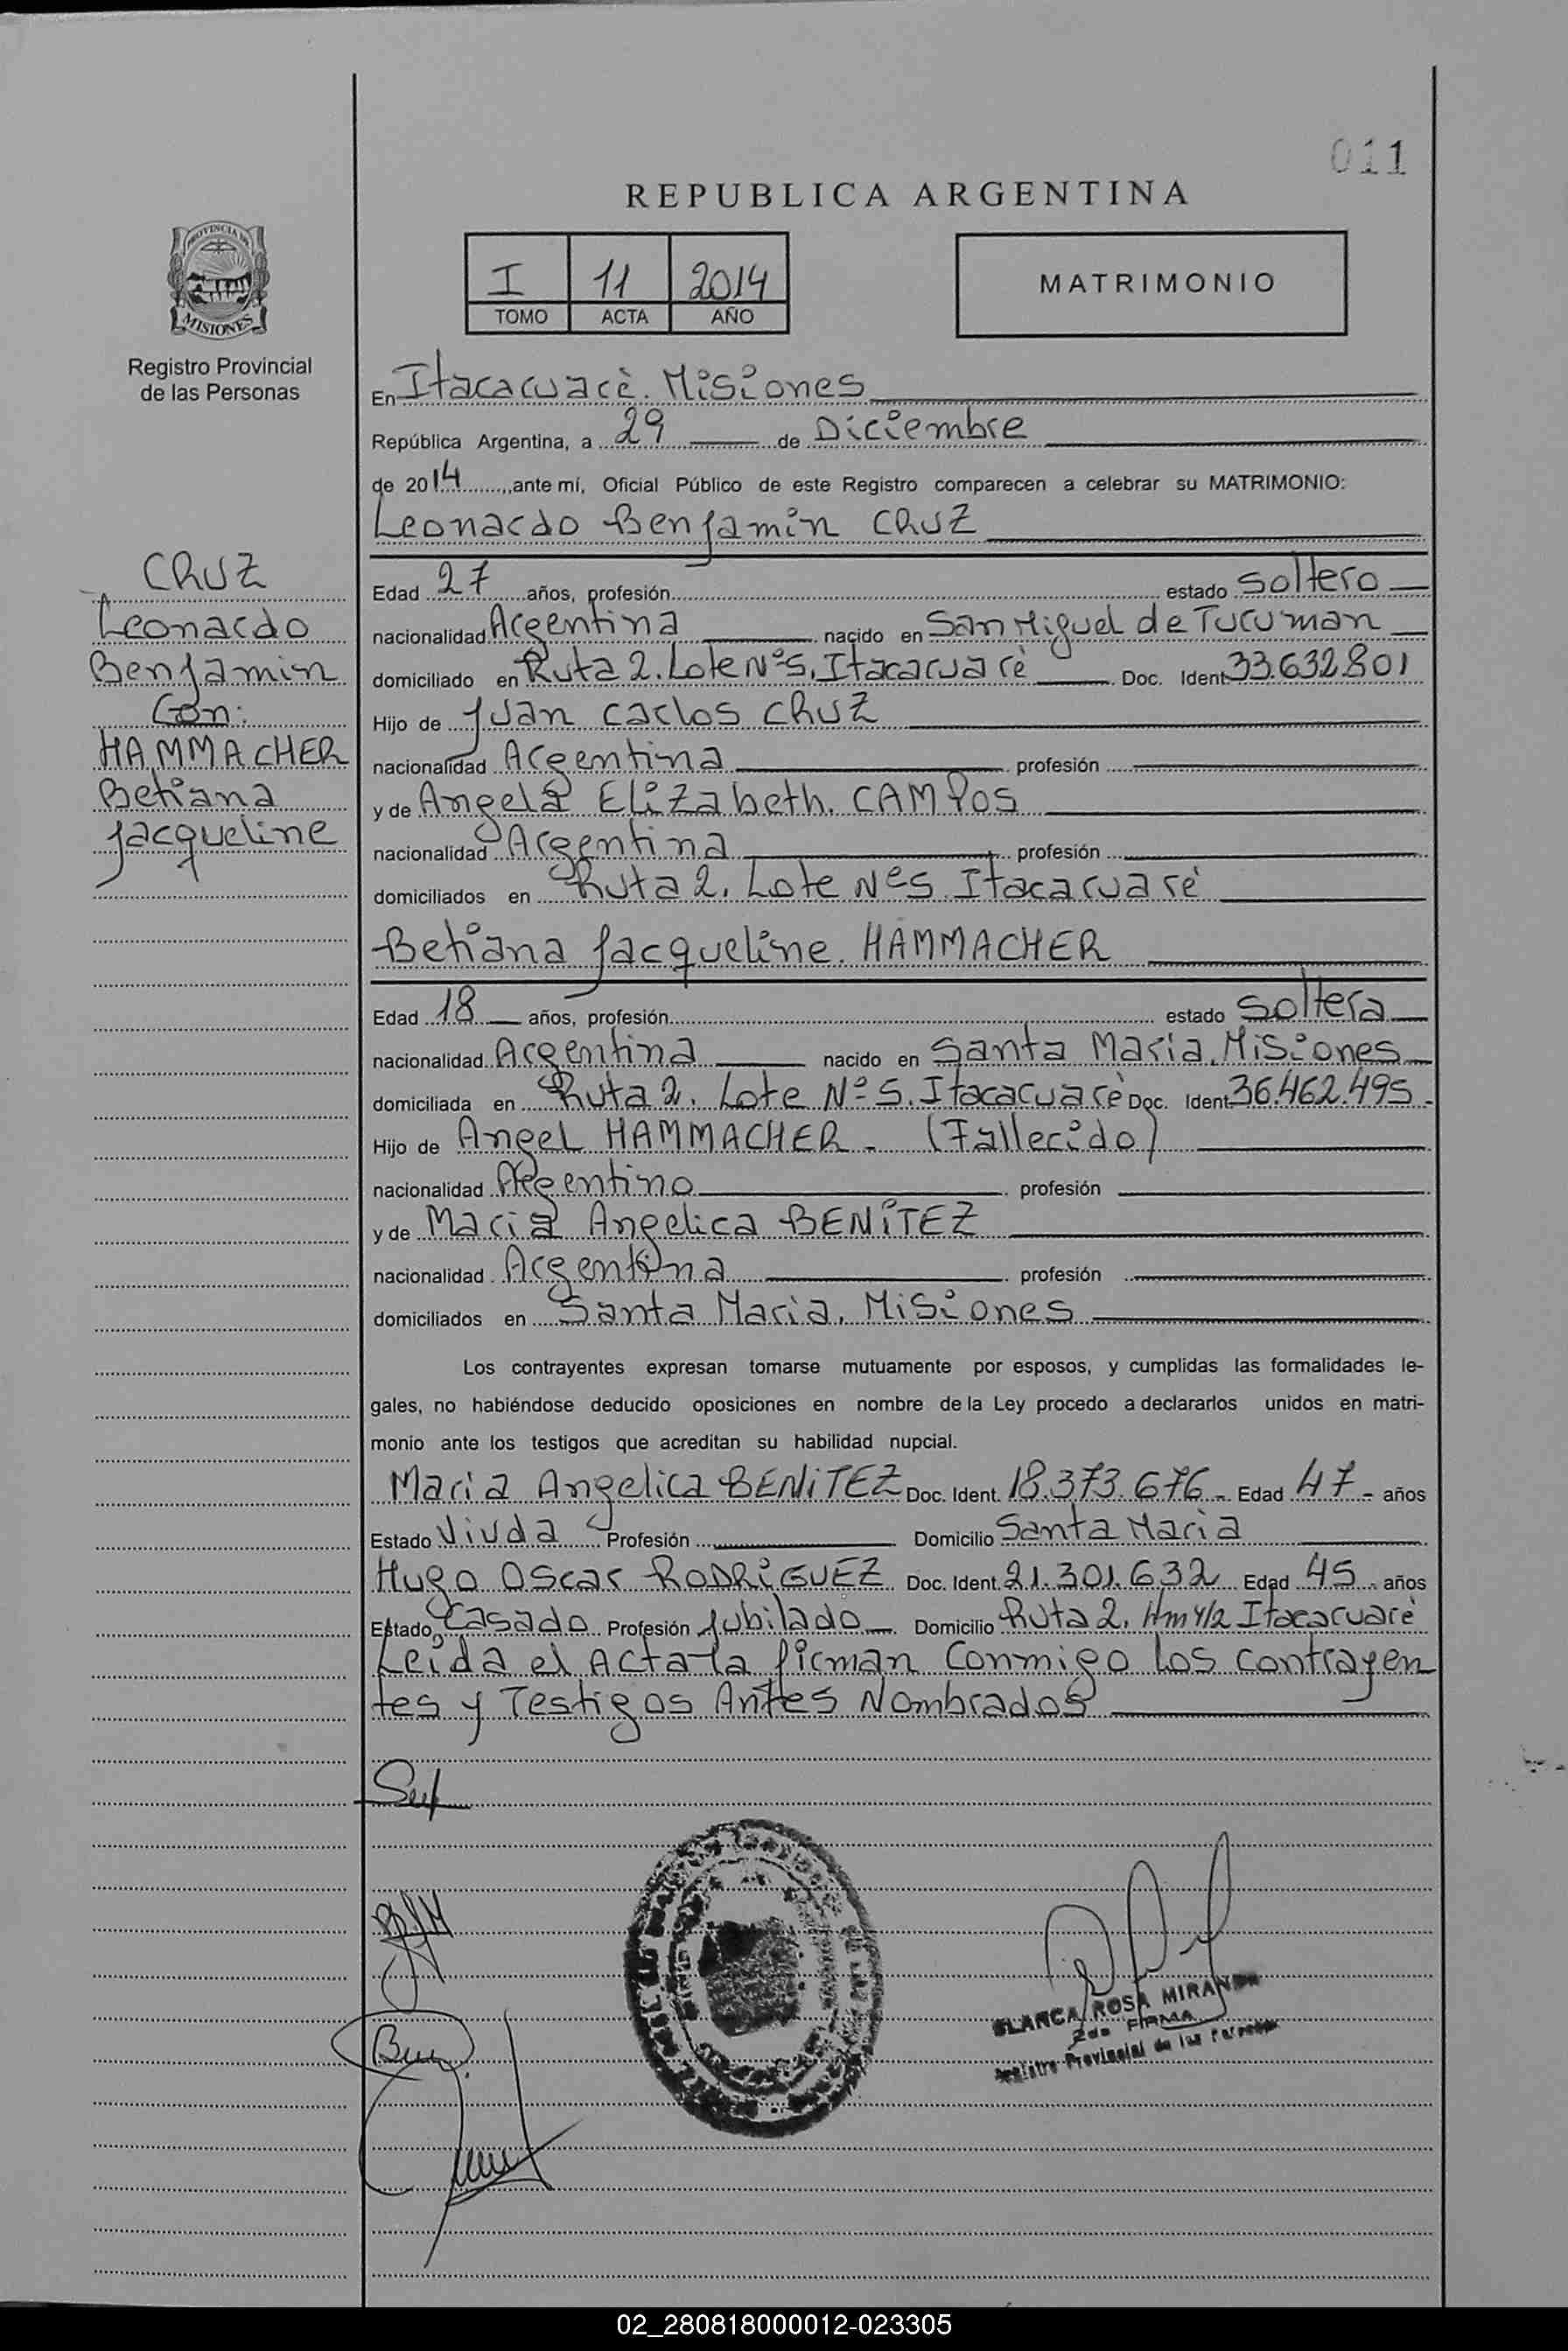 011
REPUBLICA ARGENTINA
PROVINCIA DE
MISIONES
Registro Provincial
de las Personas
I 11 2014
TOMO ACTA AÑO
MATRIMONIO
En Itacaruarè. Misiones
República Argentina, a 29 de Diciembre
de 2014, ante mí, Oficial Público de este Registro comparecen a celebrar su MATRIMONIO:
Leonardo Benjamin CRUZ
CRUZ
Leonardo
Benjamin
Con:
HAMMACHER
Betiana
Jacqueline
Edad 27 años, profesión estado Soltero
nacionalidad Argentina nacido en San Miguel de Tucuman
domiciliado en Ruta 2. Lote Nº5. Itacaruarè Doc. Ident. 33.632.801
Hijo de Juan Carlos CRUZ
nacionalidad Argentina profesión
y de Angela Elizabeth. CAMPOS
nacionalidad Argentina profesión
domiciliados en Ruta 2. Lote Nº5 Itacaruarè
Betiana Jacqueline. HAMMACHER
Edad 18 años, profesión estado Soltera
nacionalidad Argentina nacido en Santa Maria. Misiones
domiciliada en Ruta 2. Lote Nº 5. Itacaruarè Doc. Ident. 36.462.495.
Hijo de Angel HAMMACHER - (Fallecido)
nacionalidad Argentino profesión
y de Maria Angelica BENITEZ
nacionalidad Argentina profesión
domiciliados en Santa Maria. Misiones
Los contrayentes expresan tomarse mutuamente por esposos, y cumplidas las formalidades le-
gales, no habiéndose deducido oposiciones en nombre de la Ley procedo a declararlos unidos en matri-
monio ante los testigos que acreditan su habilidad nupcial.
Maria Angelica BENITEZ Doc. Ident. 18.373.676- Edad 47- años
Estado Viuda Profesión Domicilio Santa Maria
Hugo Oscar RODRIGUEZ Doc. Ident. 21.301.632 Edad 45 años
Estado Casado Profesión Jubilado Domicilio Ruta 2. Itacaruarè
Leida el Acta la firman Conmigo los contrayen
tes y Testigos Antes Nombrados
BLANCA ROSA MIRANDA
2da FIRMA
Registro Provincial de las Personas
02_280818000012-023305